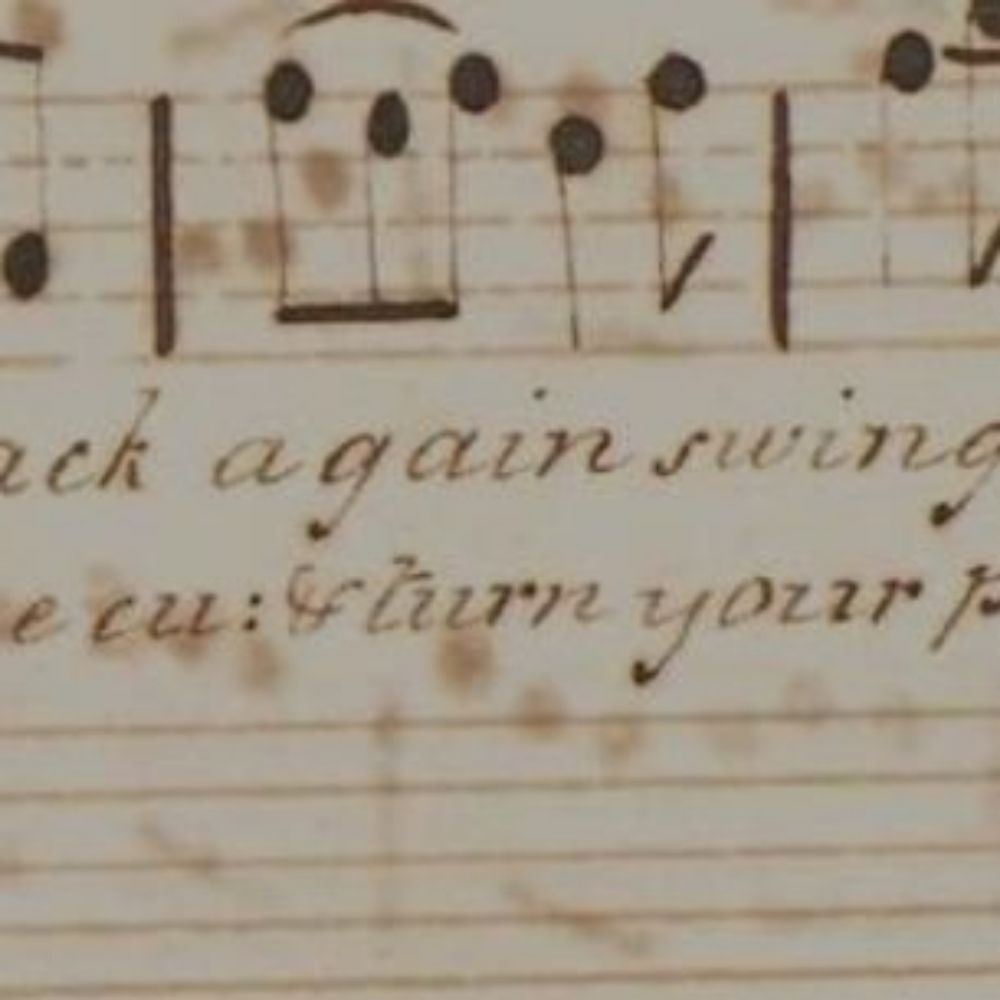 ack again swing
e cu: & turn your p